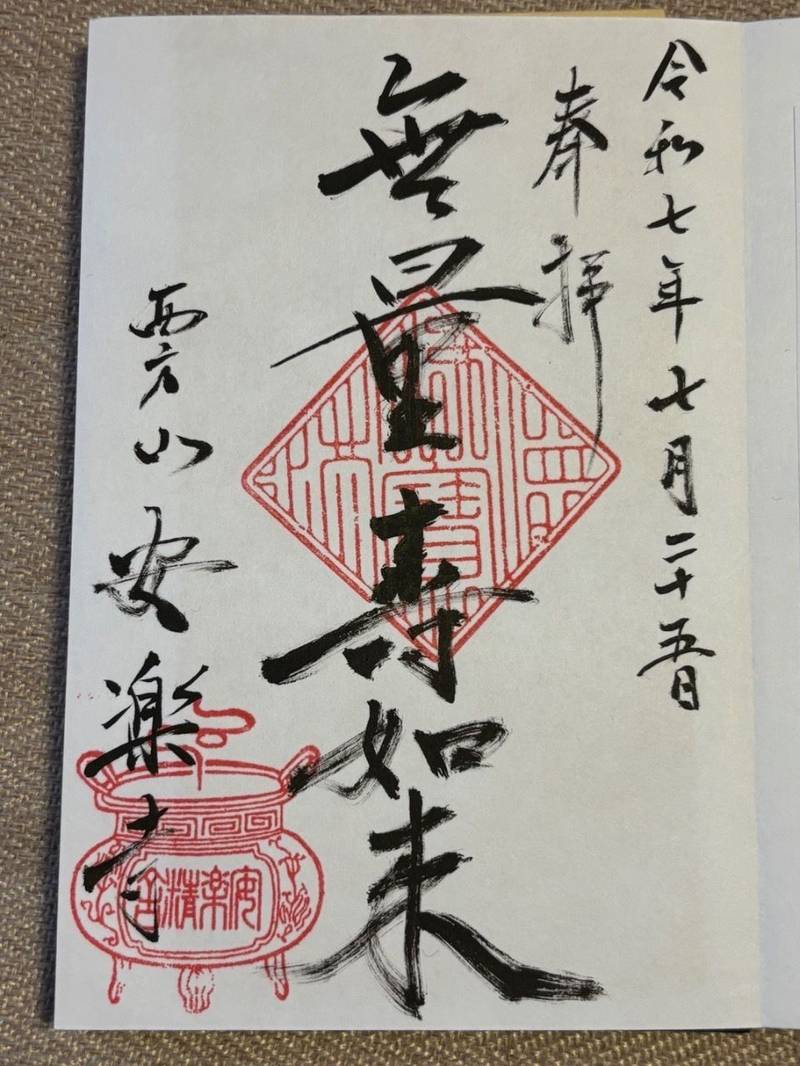 令和七年七月二十五日
奉拝
無量寿如来
西方山安楽寺
安楽精舎